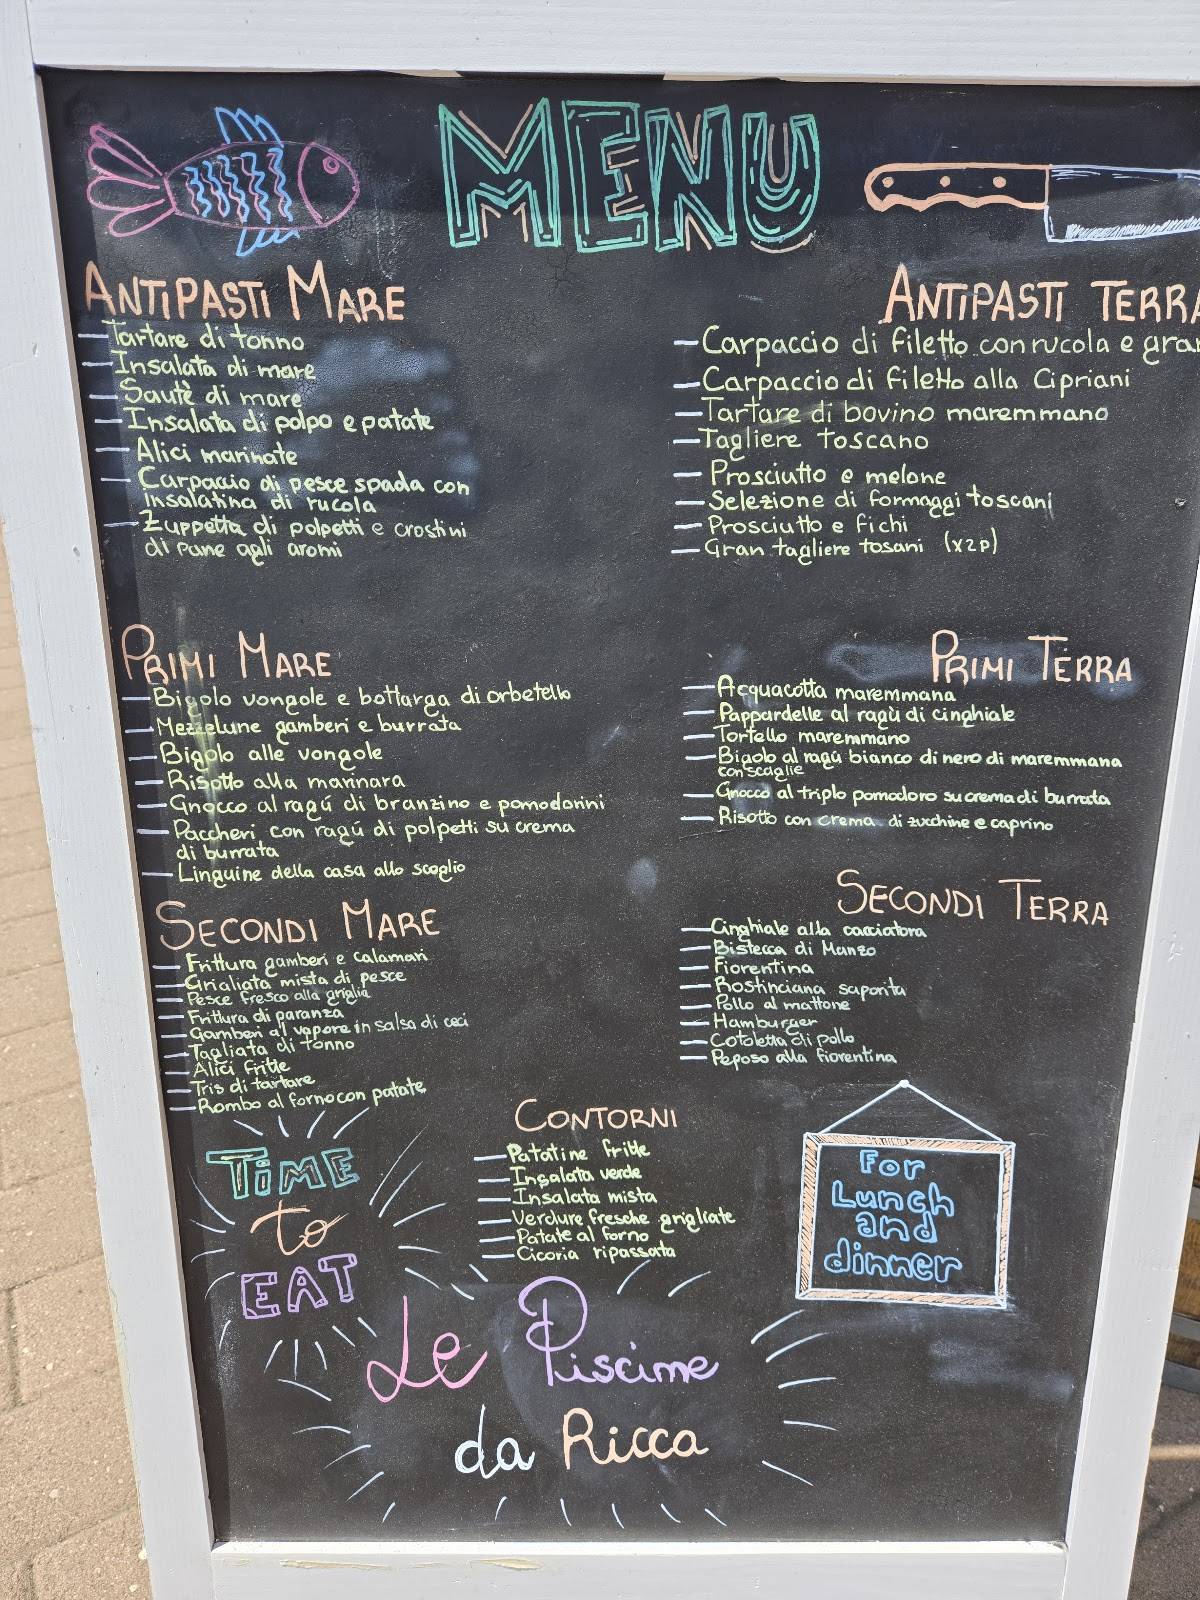 MENU
ANTIPASTI MARE
Tartare di tonno
Insalata di mare
Sautè di mare
Insalata di polpo e patate
Alici marinate
Carpaccio di pesce spada con
insalatina di rucola
Zuppetta di polpetti e crostini
di pane agli aromi
ANTIPASTI TERRA
Carpaccio di filetto con rucola e gra
Carpaccio di filetto alla Cipriani
Tartare di bovino maremmano
Tagliere toscano
Prosciutto e melone
Selezione di formaggi toscani
Prosciutto e fichi
Gran tagliere tosani (x2p)
PRIMI MARE
Bigolo vongole e bottarga di orbetello
Mezzelune gamberi e burrata
Bigolo alle vongole
Risotto alla marinara
Gnocco al ragú di branzino e pomodorini
Paccheri con ragú di polpetti su crema
di burrata
Linguine della casa allo scoglio
PRIMI TERRA
Acquacotta maremmana
Pappardelle al ragù di cinghiale
Tortello maremmano
Bigolo al ragú bianco di nero di maremmana
con scaglie
Gnocco al triplo pomodoro su crema di burrata
Risotto con crema di zucchine e caprino
SECONDI MARE
Frittura gamberi e calamari
Grialiata mista di pesce
Pesce fresco alla griglia
Frittura di paranza
Gamberi al vapore in salsa di ceci
Tagliata di tonno
Alici fritte
Tris di tartare
Rombo al forno con patate
SECONDI TERRA
Cinghiale alla cacciatora
Bistecca di Manzo
Fiorentina
Rostinciana saporita
Pollo al mattone
Hamburger
Cotoletta di pollo
Peposo alla fiorentina
CONTORNI
Patatine fritte
Insalata verde
Insalata mista
Verdure fresche grigliate
Patate al forno
Cicoria ripassata
TIME
to
EAT
For
Lunch
and
dinner
Le Piscine
da Ricca